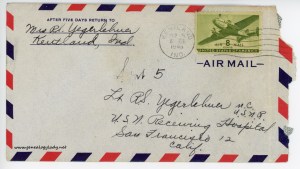 AFTER FIVE DAYS RETURN TO
Mrs RS Yegerlehner
Kentland, Ind.
8¢
UNITED STATES OF AMERICA
AIR MAIL
No 5
Lt. R.S. Yegerlehner M.C.
U.S.N.R.
U.S.N. Receiving Hospital
San Francisco 12
Calif.
www.genealogylady.net